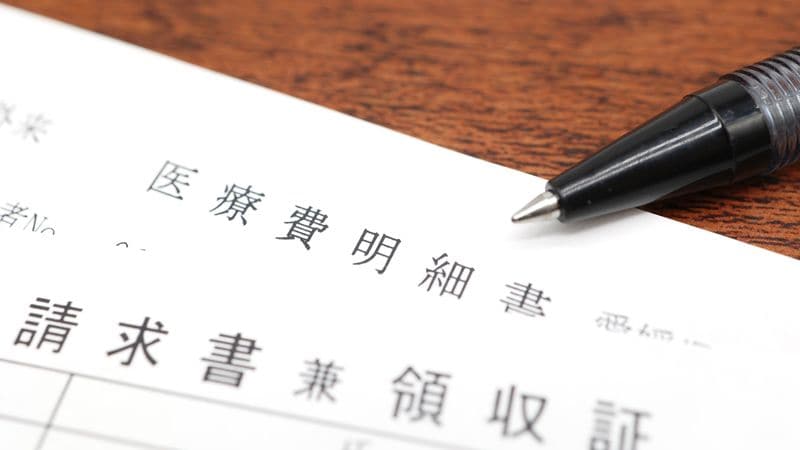 外来
医療費明細書
者No
請求書兼領収証